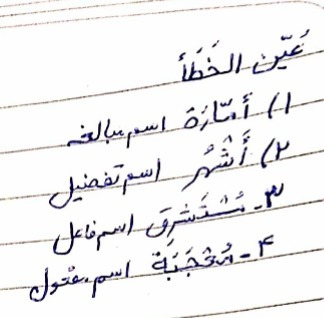 عَیّن الخَطَأ
۱) أَمّارَة اسم مبالغه
۲) أَشْهُر اسم تفضیل
۳- مُسْتَشرِق اسم فاعل
۴- مُعْجَبَة اسم مفعول